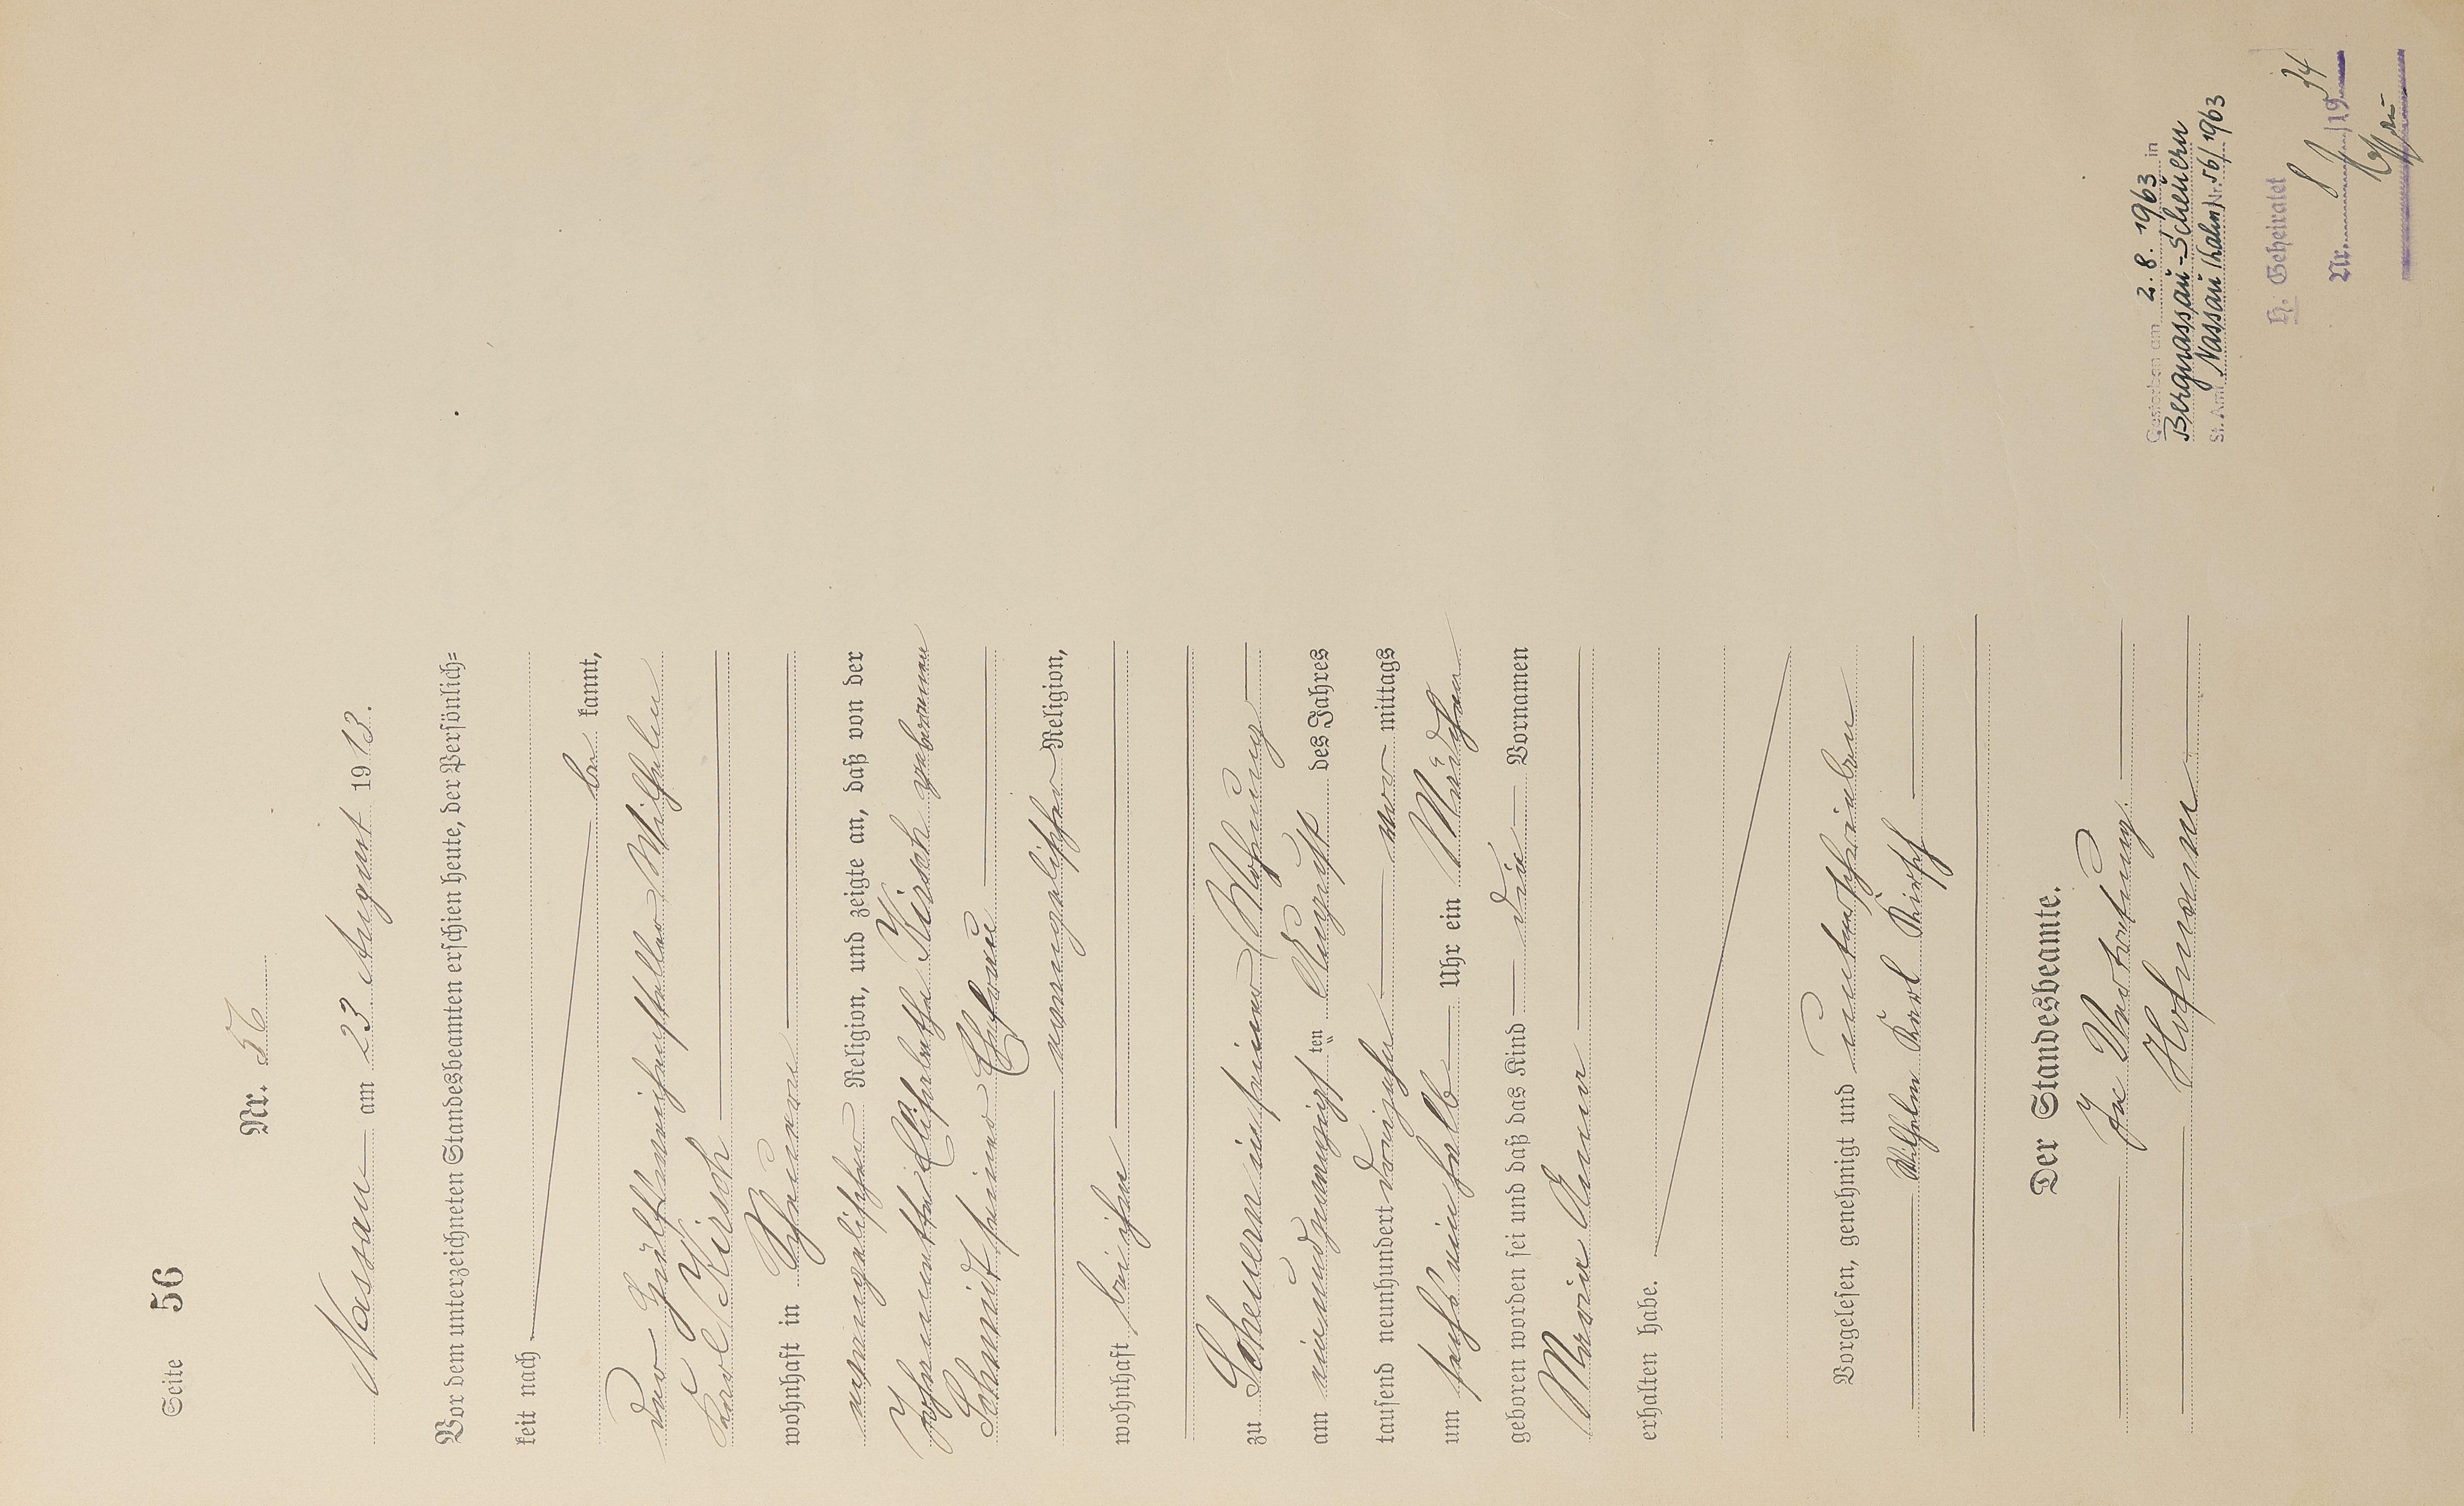 Seite 56
Nr. 56
Nassau am 23 August 1913.
Vor dem unterzeichneten Standesbeamten erschien heute, der Persönlich=
keit nach
be kannt,
der Hülfsweichensteller Wilhelm
Karl Kirsch
wohnhaft in Scheuern
evangelischer Religion, und zeigte an, daß von der
Johannette Elisabethe Kirsch geborenen
Schmidt seiner Ehefrau
evangelischer Religion,
wohnhaft bei ihm
zu Scheuern in seiner Wohnung
am einundzwanzigsten August des Jahres
tausend neunhundert dreizehn vor mittags
um sechs ein halb Uhr ein Mädchen
geboren worden sei und daß das Kind die Vornamen
Maria Anna
erhalten habe.
Vorgelesen, genehmigt und unterschrieben
Wilhelm Karl Kirsch
Der Standesbeamte.
In Vertretung.
Hofmann
Gestorben am 2. 8. 1963 in
Bergnassau-Scheuern
St. Amt Nassau (Lahn) Nr. 56/1963
H. Geheiratet
Nr. 8 / 1934